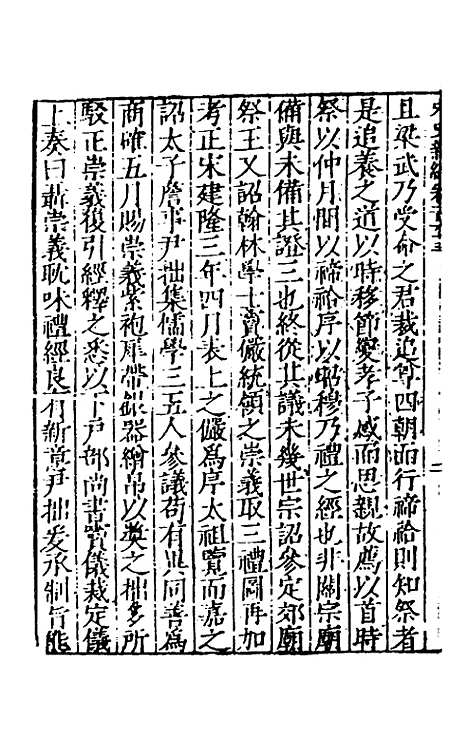 宋史新編卷百六十三
且梁武乃受命之君裁追尊四朝而行禘祫則知祭者
是追養之道以時移節變孝子感而思親故薦以首時
祭以仲月間以禘祫序以昭穆乃禮之經也非關宗廟
備與未備其證三也終從其議未幾世宗詔參定郊廟
祭王又詔翰林學士竇儼統領之崇義取三禮圖再加
考正宋建隆三年四月表上之儼為序太祖覽而嘉之
詔太子詹事尹拙集儒學三五人參議苟有異同善為
商確五月賜崇義紫袍犀帶銀器繒帛以奬之拙多所
駁正崇義復引經釋之悉以下戶部尚書竇儀裁定儀
上奏曰聶崇義耽味禮經良有新章尹拙爰承制旨能